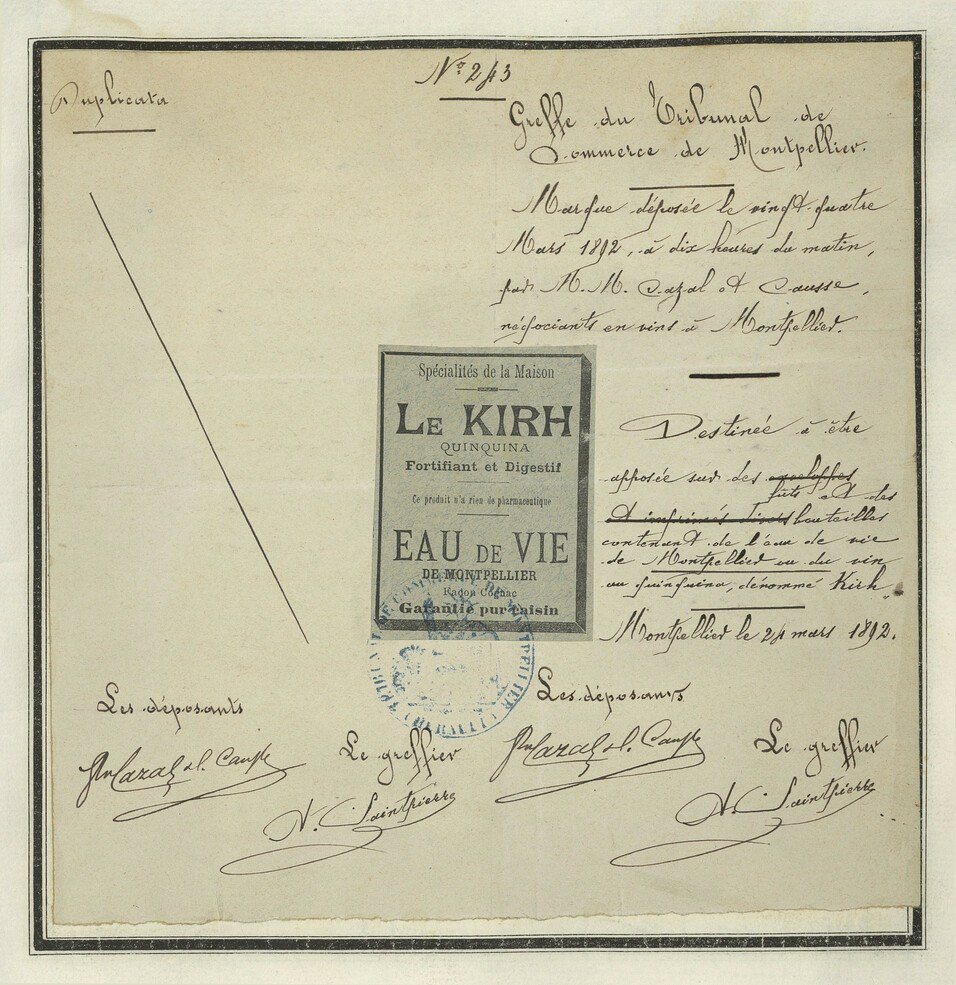 Duplicata
Nº 243
Greffe du Tribunal de
Commerce de Montpellier.
Marque déposée le vingt quatre
Mars 1892, à dix heures du matin,
par M. M. Cazal et Causse,
négociants en vins à Montpellier.
Spécialités de la Maison
LE KIRH
QUINQUINA
Fortifiant et Digestif
Ce produit n'a rien de pharmaceutique
EAU DE VIE
DE MONTPELLIER
Façon Cognac
Garantie pur raisin
Destinée à être
apposée sur des enveloppes
fûts et des
et imprimés divers bouteilles
contenant de l'eau de vie
de Montpellier ou du vin
au quinquina, dénommé Kirh.
Montpellier le 24 mars 1892.
TRIBUNAL DE COMMERCE DE MONTPELLIER (HÉRAULT)
Les déposants
Le greffier
Cazal et
A. Saintpierre
Les déposants
Le greffier
Cazal et
A. Saintpierre